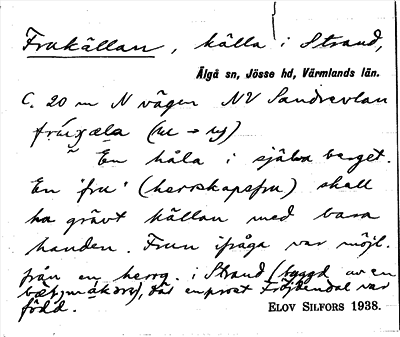 Frukällan, källa i Strand,
Älgå sn, Jösse hd, Värmlands län.
C. 20 m N vägen NV Sandrevlan
En håla i själva berget.
En 'fru' (herrskapsfru) skall
ha grävt källan med bara
handen. Frun ifråga var möjl.
från en herrg. i Strand (byggd av en
), där en prost Fröjdendal var
född.
ELOV SILFORS 1938.